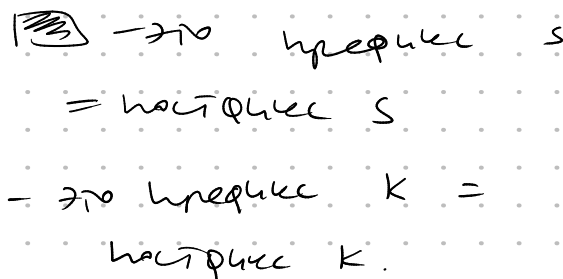 — это префикс s
= постфикс s
— это префикс k =
постфикс k.